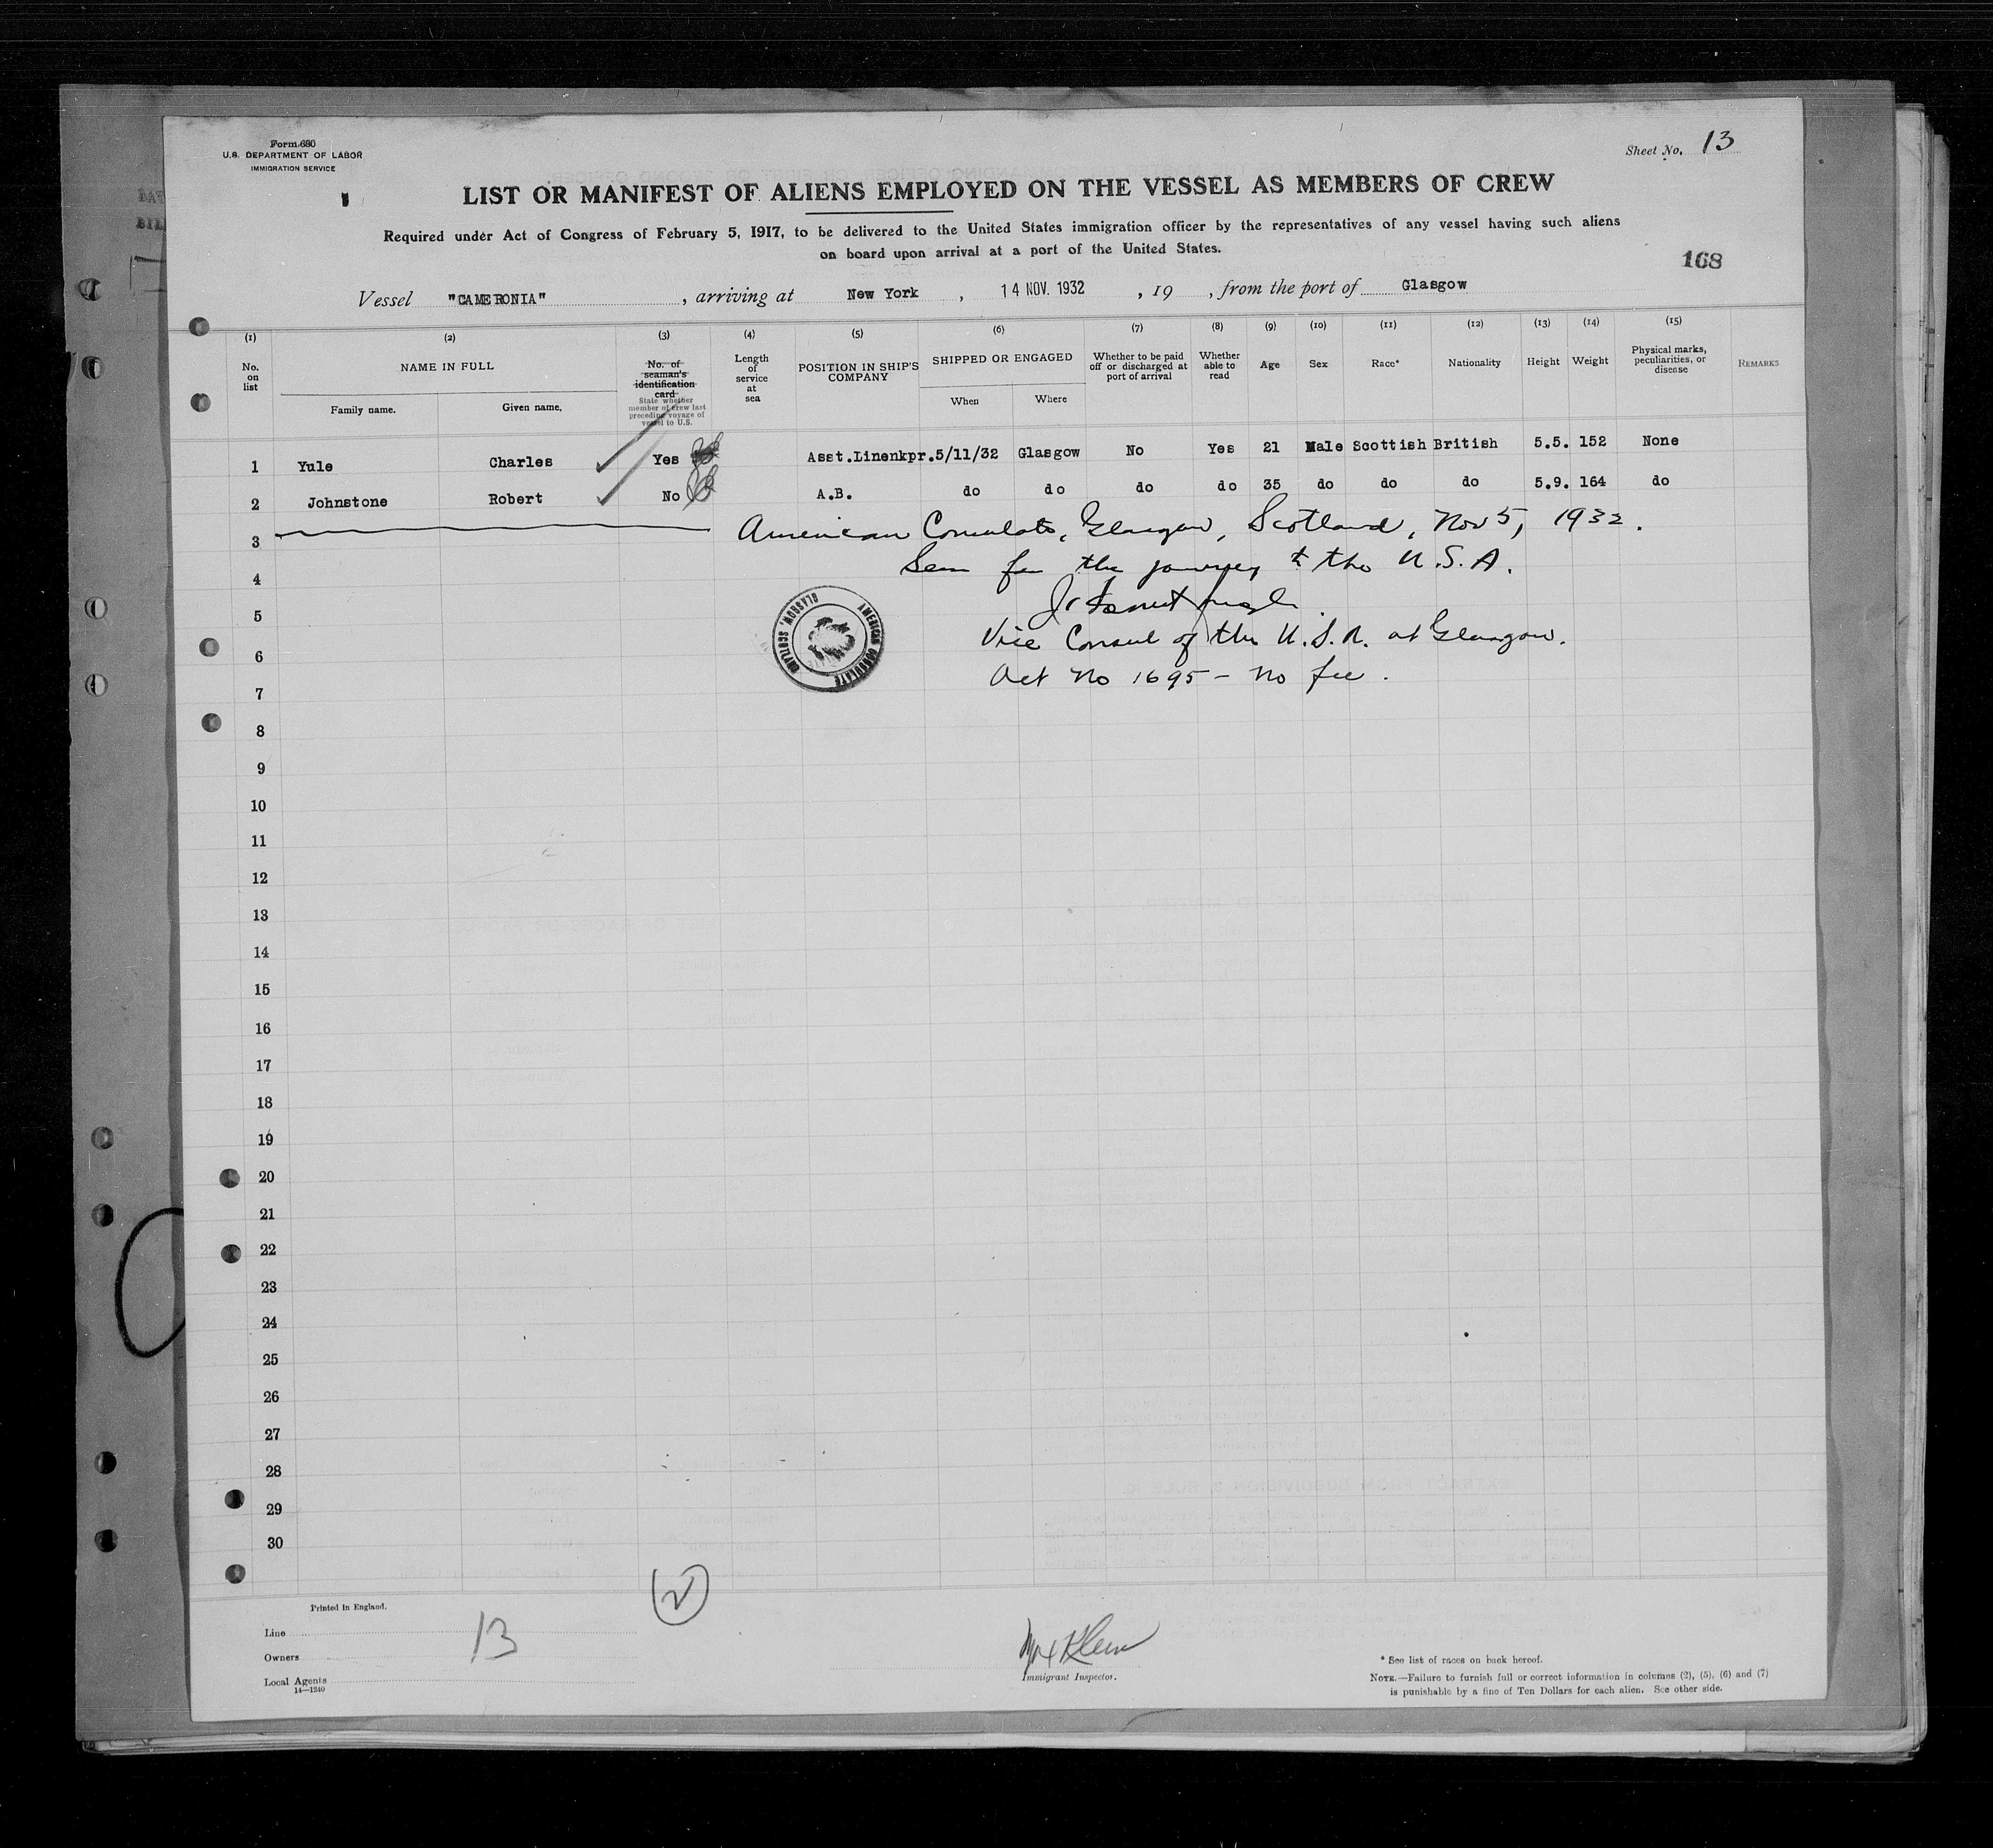 Form 680
U.S. DEPARTMENT OF LABOR
IMMIGRATION SERVICE
Sheet No. 13
LIST OR MANIFEST OF ALIENS EMPLOYED ON THE VESSEL AS MEMBERS OF CREW
Required under Act of Congress of February 5, 1917, to be delivered to the United States immigration officer by the representatives of any vessel having such aliens
on board upon arrival at a port of the United States.
168
Vessel "CAMERONIA", arriving at New York, 14 NOV. 1932, 19, from the port of Glasgow
(1) (2) (3) (4) (5) (6) (7) (8) (9) (10) (11) (12) (13) (14) (15)
No. on list
NAME IN FULL
Family name. Given name.
No. of seaman's identification card
State whether member of crew last preceding voyage of vessel to U.S.
Length of service at sea
POSITION IN SHIP'S COMPANY
SHIPPED OR ENGAGED
When Where
Whether to be paid off or discharged at port of arrival
Whether able to read
Age
Sex
Race*
Nationality
Height
Weight
Physical marks, peculiarities, or disease
REMARKS
1 Yule Charles Yes Asst.Linenkpr. 5/11/32 Glasgow No Yes 21 Male Scottish British 5.5. 152 None
2 Johnstone Robert No A.B. do do do do 35 do do do 5.9. 164 do
3 American Consulate, Glasgow, Scotland, Nov 5, 1932.
4 Seen for the journey to the U.S.A.
5
AMERICAN CONSULATE
GLASGOW, SCOTLAND
6 Vice Consul of the U.S.A. at Glasgow.
7 Act No 1695 - No fee.
8
9
10
11
12
13
14
15
16
17
18
19
20
21
22
23
24
25
26
27
28
29
30
2
Printed in England.
Line
13
Owners
Local Agents
14—1240
Klein
Immigrant Inspector.
* See list of races on back hereof.
NOTE.—Failure to furnish full or correct information in columns (2), (5), (6) and (7)
is punishable by a fine of Ten Dollars for each alien. See other side.